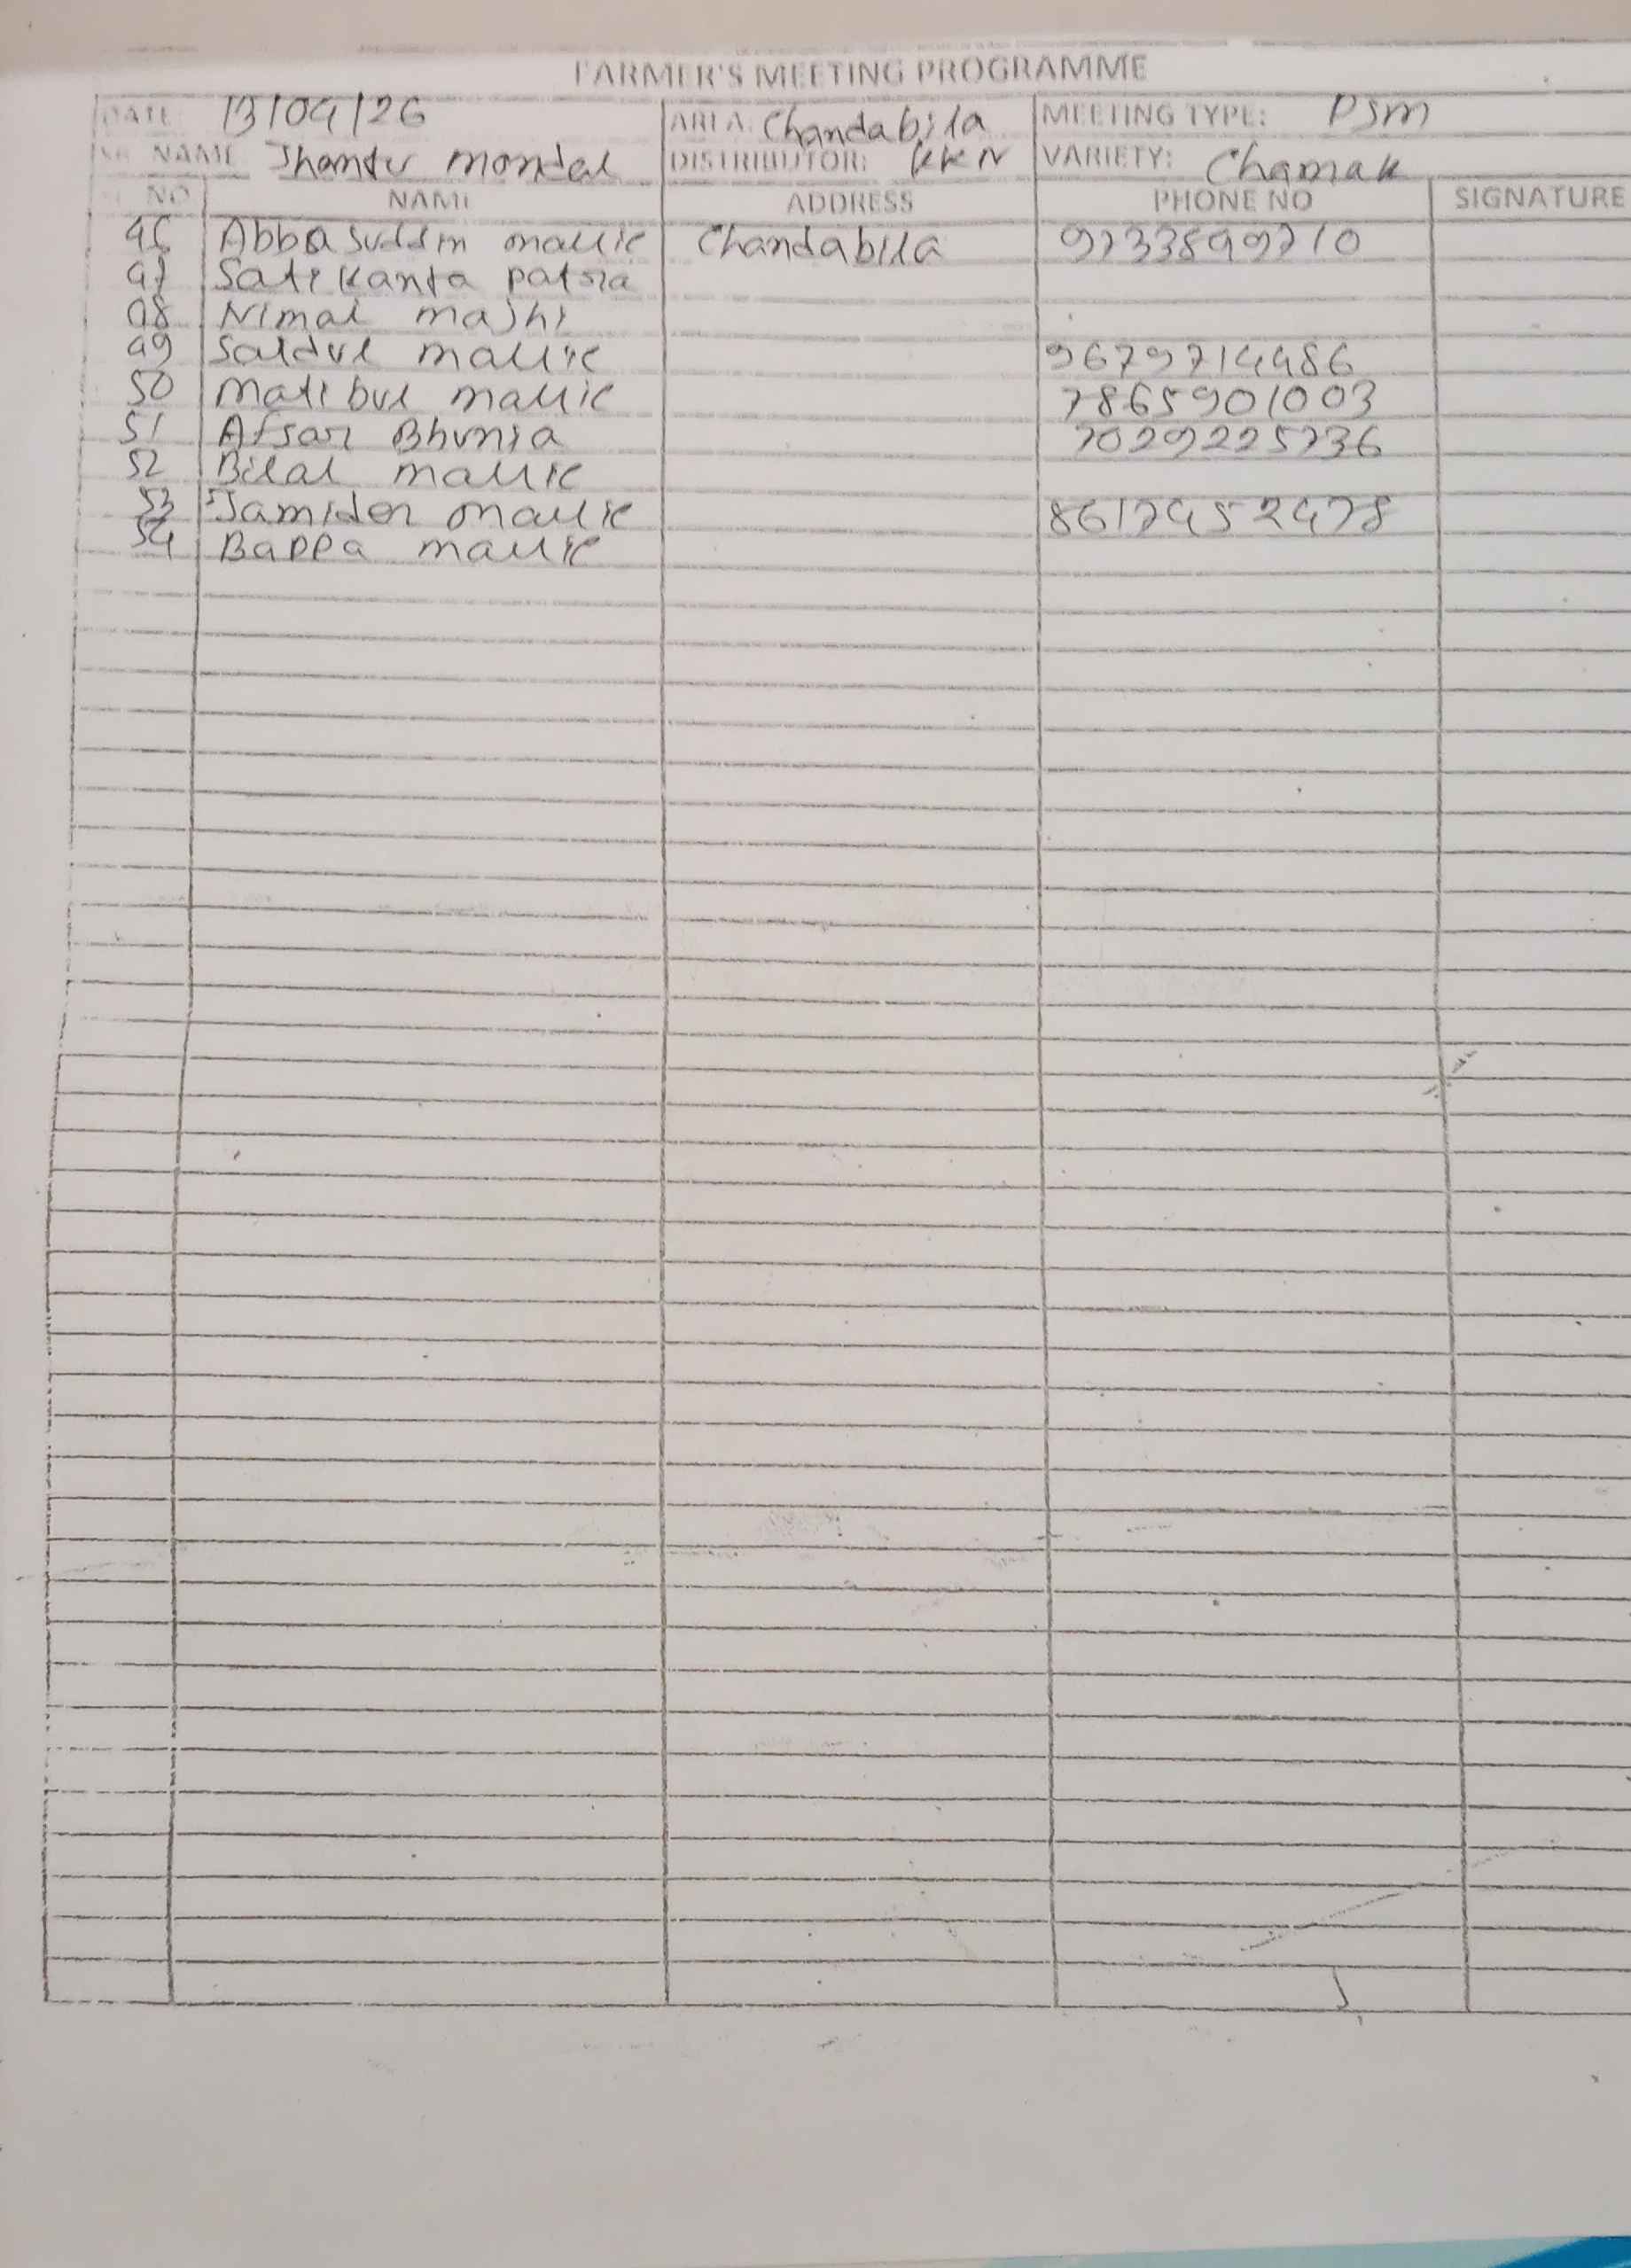 FARMER'S MEETING PROGRAMME
DATE 13/04/26 AREA: Chandabila MEETING TYPE: PSM
NAME Jhantu mondal DISTRIBUTOR: KKN VARIETY: Chamak
NO NAME ADDRESS PHONE NO SIGNATURE
46 Abbasuddin mallic Chandabila 9733849710
47 Satikanta patra
48 Nimai majhi
49 Saidul mallic 9679714486
50 Matibul mallic 7865901003
51 Afsar Bhunia 7029225736
52 Bilal mallic
53 Jamider mallic 8617452478
54 Bappa mallic